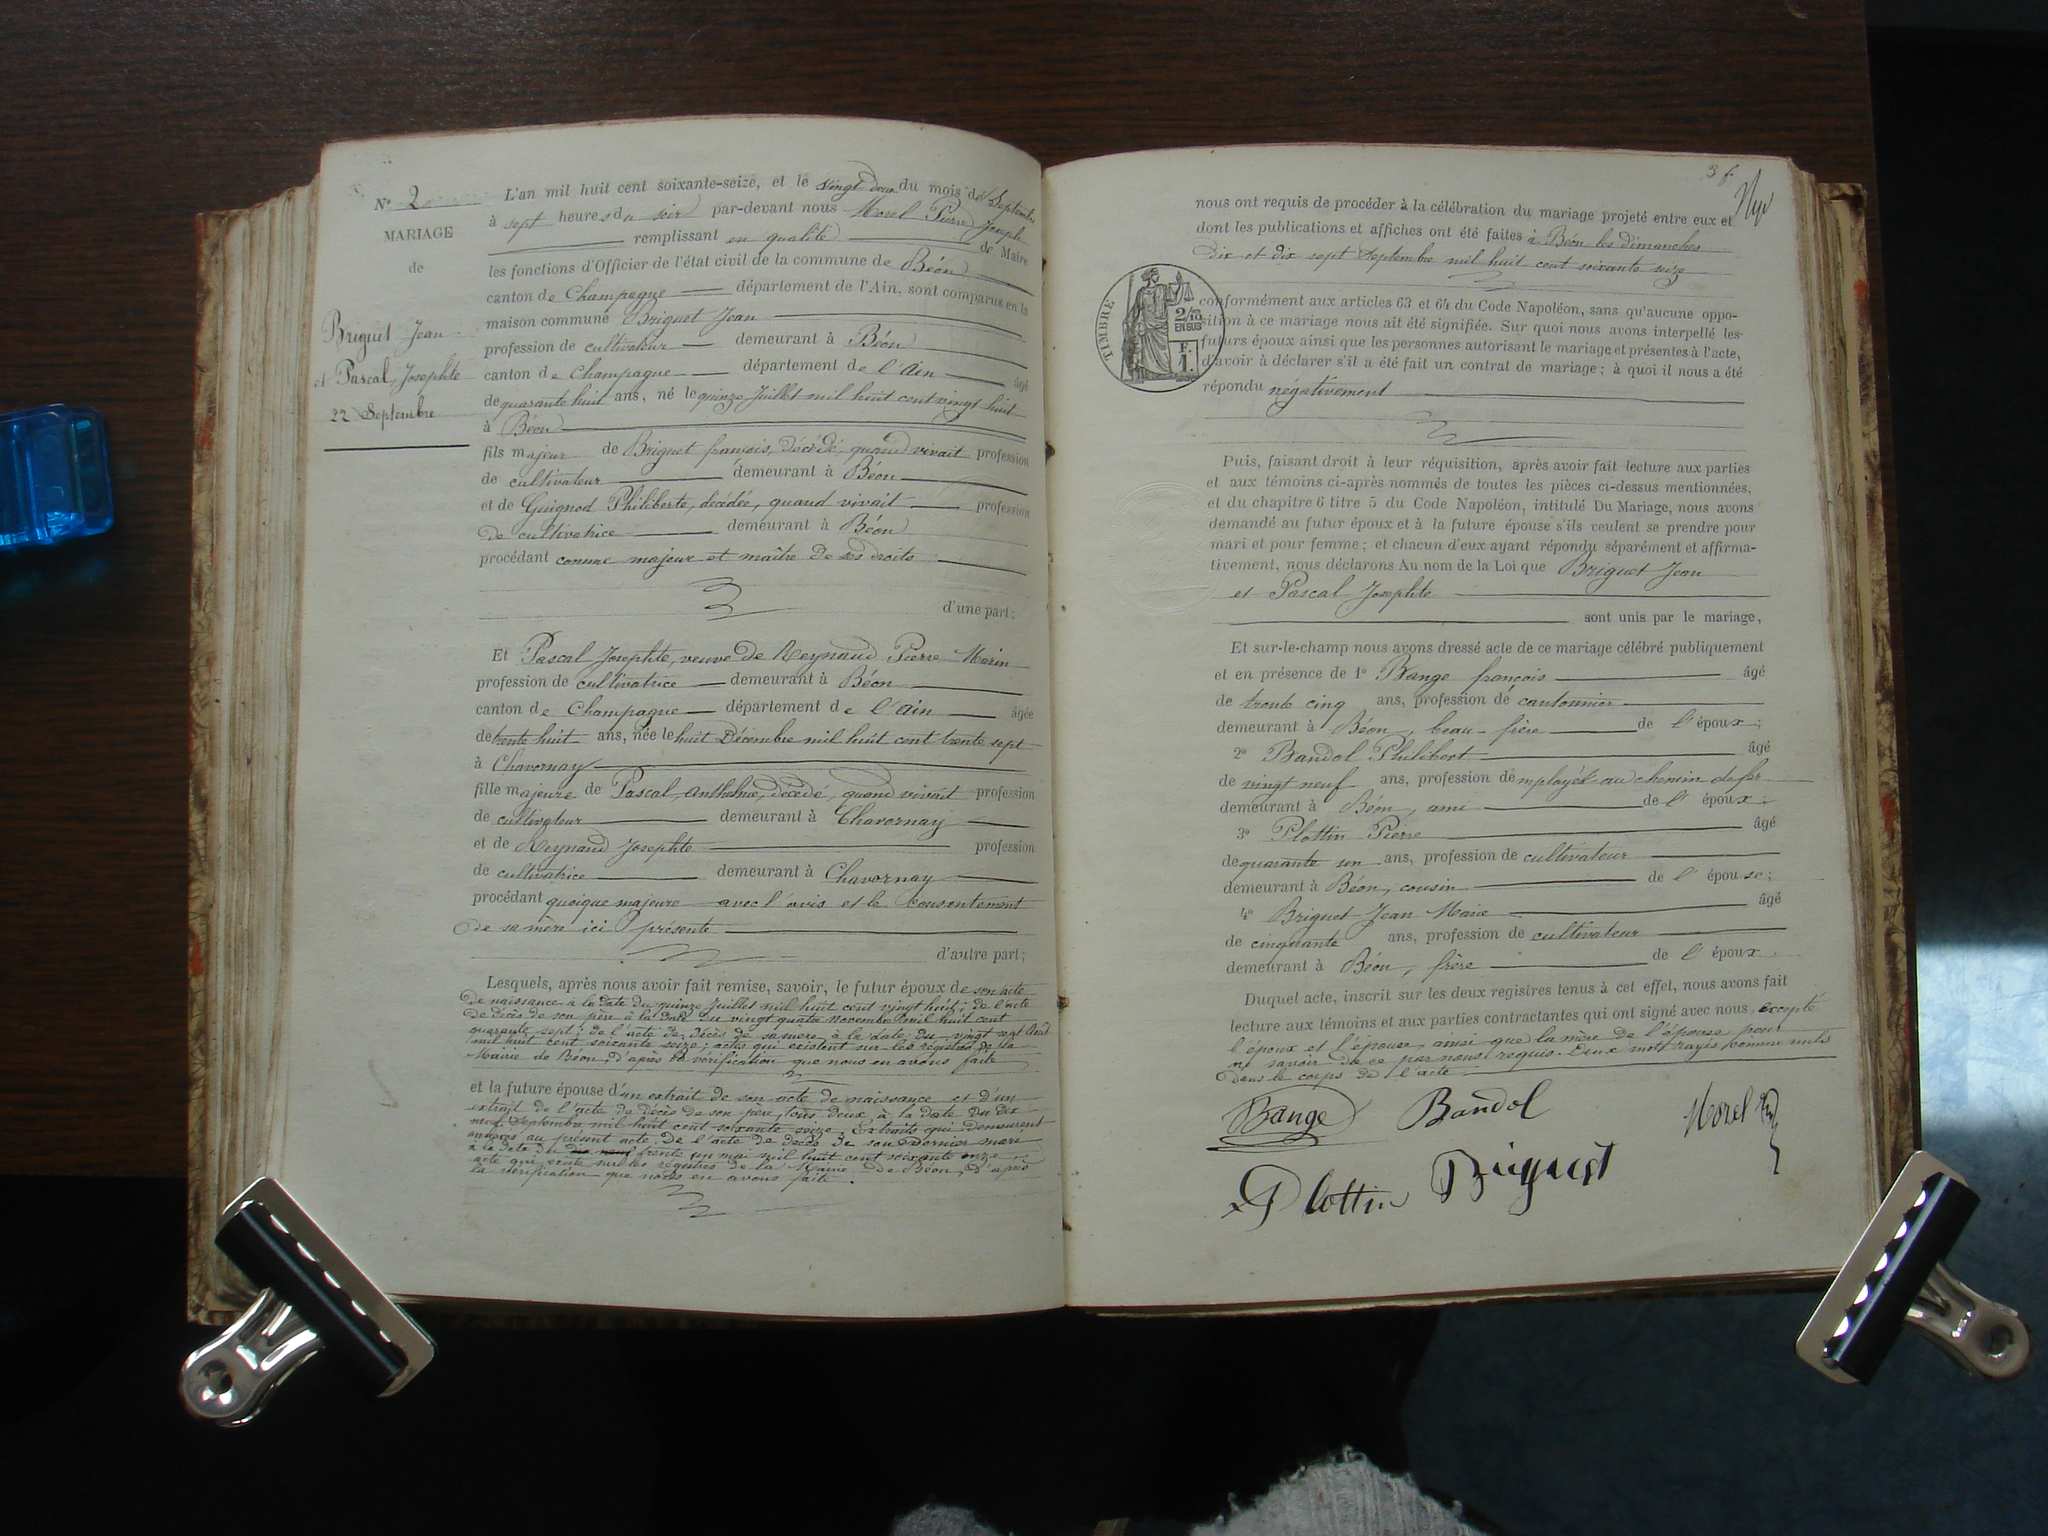 N° 2
MARIAGE
de
Briguet Jean
et Pascal Josephte
22 Septembre
L'an mil huit cent soixante-seize, et le vingt deux du mois de Septembre
à sept heures du soir par-devant nous Morel Pierre Joseph
remplissant en qualité de Maire
les fonctions d'Officier de l'état civil de la commune de Béon
canton de Champagne département de l'Ain, sont comparus en la
maison commune Briguet Jean
profession de cultivateur demeurant à Béon
canton de Champagne département de l'Ain âgé
de quarante huit ans, né le quinze Juillet mil huit cent vingt huit
à Béon
fils majeur de Briguet françois, décédé, quand vivait profession
de cultivateur demeurant à Béon
et de Guignod Philiberte, décédée, quand vivait profession
de cultivatrice demeurant à Béon
procédant comme majeur et maître de ses droits
d'une part;
Et Pascal Josephte, veuve de Reynaud Pierre Marin
profession de cultivatrice demeurant à Béon
canton de Champagne département de l'Ain âgée
de trente huit ans, née le huit Décembre mil huit cent trente sept
à Chavornay
fille majeure de Pascal Anthelme, décédé, quand vivait profession
de cultivateur demeurant à Chavornay
et de Reynaud Josephte profession
de cultivatrice demeurant à Chavornay
procédant quoique majeure avec l'avis et le consentement
de sa mère ici présente
d'autre part;
Lesquels, après nous avoir fait remise, savoir, le futur époux de son acte
de naissance à la date du quinze Juillet mil huit cent vingt huit; de l'acte
de décès de son père à la date du vingt quatre novembre mil huit cent
quarante sept; de l'acte de décès de sa mère à la date du vingt sept
mil huit cent soixante seize; actes qui existent sur les registres de la
Mairie de Béon, d'après la vérification que nous en avons faite
et la future épouse d'un extrait de son acte de naissance et d'un
extrait de l'acte de décès de son père, tous deux à la date du dix
neuf Septembre mil huit cent soixante seize. Extraits qui demeurent
annexés au présent acte. De l'acte de décès de son dernier mari
à la date du dix neuf trente un mai mil huit cent soixante onze
acte qui existe sur les registres de la Mairie de Béon, d'après
la vérification que nous en avons faite.
36
nous ont requis de procéder à la célébration du mariage projeté entre eux et
dont les publications et affiches ont été faites à Béon les dimanches
dix et dix sept Septembre mil huit cent soixante seize
TIMBRE
2/10
EN SUS
F.
1.
conformément aux articles 63 et 64 du Code Napoléon, sans qu'aucune oppo-
sition à ce mariage nous ait été signifiée. Sur quoi nous avons interpellé les
futurs époux ainsi que les personnes autorisant le mariage et présentes à l'acte,
d'avoir à déclarer s'il a été fait un contrat de mariage; à quoi il nous a été
répondu négativement
Puis, faisant droit à leur réquisition, après avoir fait lecture aux parties
et aux témoins ci-après nommés de toutes les pièces ci-dessus mentionnées,
et du chapitre 6 titre 5 du Code Napoléon, intitulé Du Mariage, nous avons
demandé au futur époux et à la future épouse s'ils veulent se prendre pour
mari et pour femme; et chacun d'eux ayant répondu séparément et affirma-
tivement, nous déclarons Au nom de la Loi que Briguet Jean
et Pascal Josephte
sont unis par le mariage,
Et sur-le-champ nous avons dressé acte de ce mariage célébré publiquement
et en présence de 1° Bange françois âgé
de trente cinq ans, profession de cantonnier
demeurant à Béon, beau-frère de l'époux;
2° Bandol Philibert âgé
de vingt neuf ans, profession d'employé au chemin de fer
demeurant à Béon, ami de l'époux;
3° Plottin Pierre âgé
de quarante un ans, profession de cultivateur
demeurant à Béon, cousin de l'épouse;
4° Briguet Jean Marie âgé
de cinquante ans, profession de cultivateur
demeurant à Béon, frère de l'époux.
Duquel acte, inscrit sur les deux registres tenus à cet effet, nous avons fait
lecture aux témoins et aux parties contractantes qui ont signé avec nous, excepté
l'époux et l'épouse, ainsi que la mère de l'épouse pour
ne savoir de ce par nous requis. Deux mots rayés comme nuls
dans le corps de l'acte
Bange Bandol Morel
Plottin Briguet